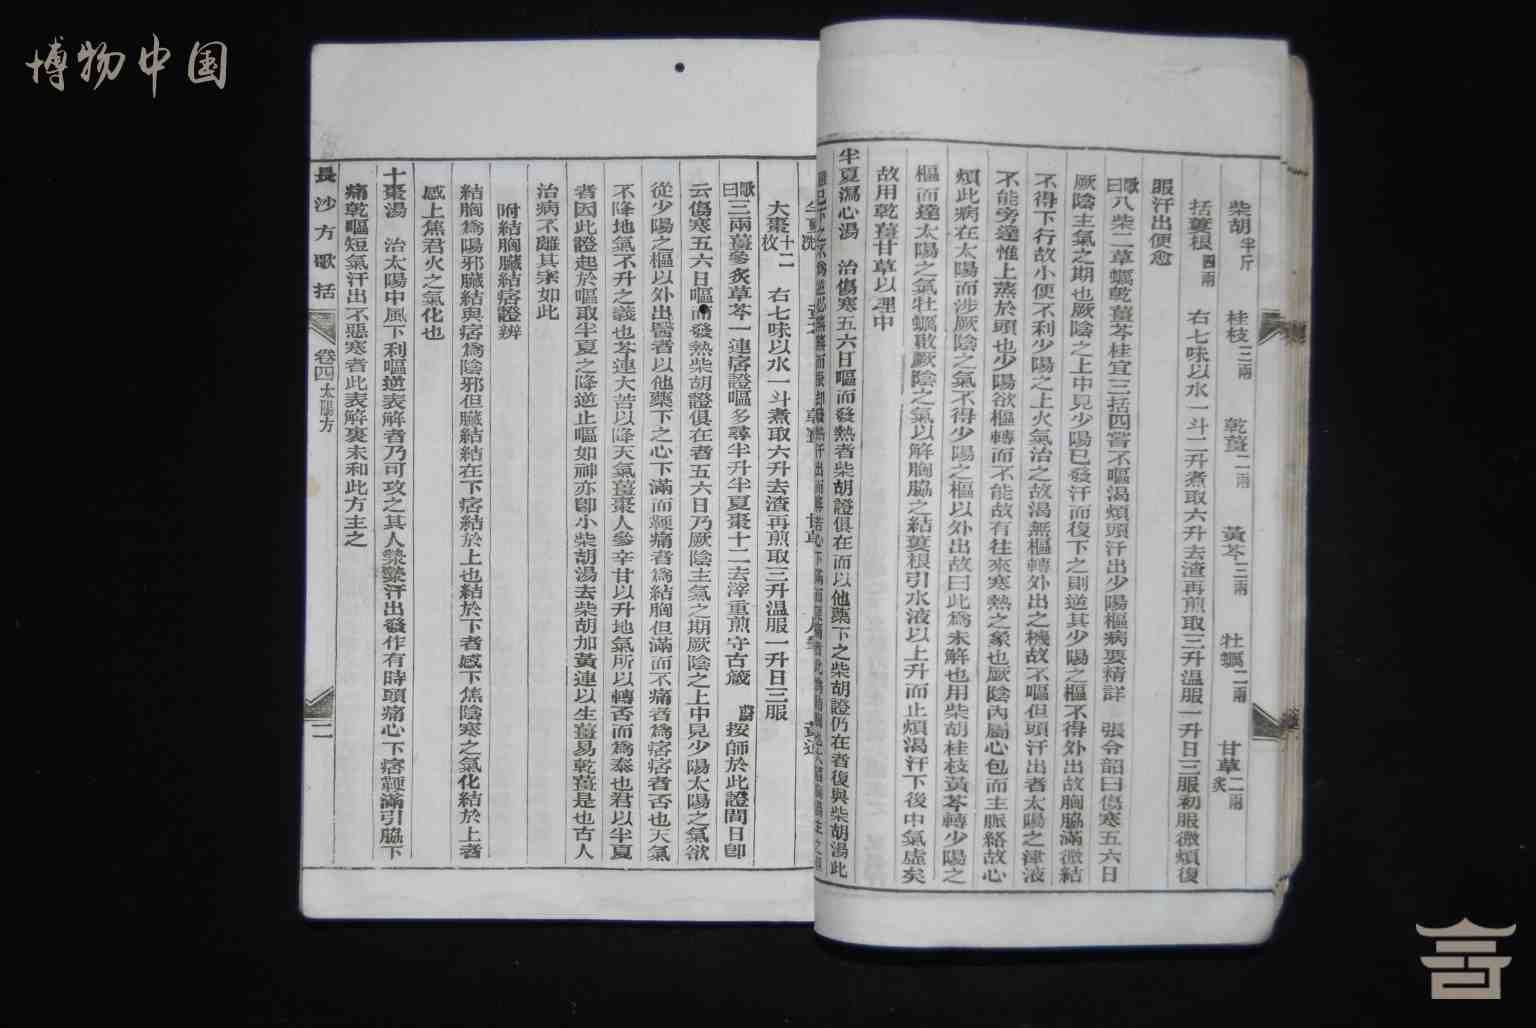 博物中国
柴胡半斤 桂枝三兩 乾薑二兩 黃芩三兩 牡蠣二兩 甘草二兩炙
括蔞根四兩 右七味以水一斗二升煮取六升去渣再煎取三升温服一升日三服初服微煩復
服汗出便愈
歌曰八柴二草蠣乾薑芩桂宜三括四嘗不嘔渴煩頭汗出少陽樞病要精詳 張令韶曰傷寒五六日
厥陰主氣之期也厥陰之上中見少陽已發汗而復下之則逆其少陽之樞不得外出故胸脇滿微結
不得下行故小便不利少陽之上火氣治之故渴無樞轉外出之機故不嘔但頭汗出者太陽之津液
不能旁達惟上蒸於頭也少陽欲樞轉而不能故有往來寒熱之象也厥陰內屬心包而主脈絡故心
煩此病在太陽而涉厥陰之氣不得少陽之樞以外出故曰此為未解也用柴胡桂枝黃芩轉少陽之
樞而達太陽之氣牡蠣啟厥陰之氣以解胸脇之結蔞根引水液以上升而止煩渴汗下後中氣虛矣
故用乾薑甘草以理中
半夏瀉心湯 治傷寒五六日嘔而發熱者柴胡證俱在而以他藥下之柴胡證仍在者復與柴胡湯此
大棗十二枚 右七味以水一斗煮取六升去渣再煎取三升温服一升日三服
歌曰三兩薑參炙草芩一連痞證嘔多尋半升半夏棗十二去滓重煎守古箴 蔚按師於此證間日卽
云傷寒五六日嘔而發熱柴胡證俱在者五六日乃厥陰主氣之期厥陰之上中見少陽太陽之氣欲
從少陽之樞以外出醫者以他藥下之心下滿而鞕痛者為結胸但滿而不痛者為痞痞者否也天氣
不降地氣不升之義也芩連大苦以降天氣薑棗人參辛甘以升地氣所以轉否而為泰也君以半夏
者因此證起於嘔取半夏之降逆止嘔如神亦卽小柴胡湯去柴胡加黃連以生薑易乾薑是也古人
治病不離其宗如此
附結胸臟結痞證辨
結胸為陽邪臟結與痞為陰邪但臟結結在下痞結於上也結於下者感下焦陰寒之氣化結於上者
感上焦君火之氣化也
十棗湯 治太陽中風下利嘔逆表解者乃可攻之其人漐漐汗出發作有時頭痛心下痞鞕滿引脇下
痛乾嘔短氣汗出不惡寒者此表解裏未和此方主之
長沙方歌括 卷四 太陽方 二